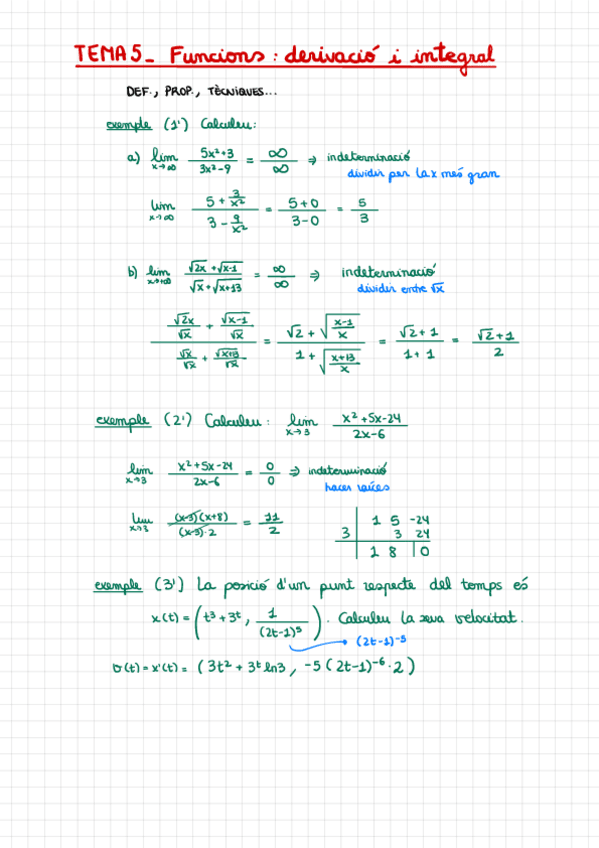 TEMA 5_ Funcions: derivació i integral
DEF., PROP., TÈCNIQUES...
exemple (1') Calculeu:
a) lim x→∞ (5x²+3)/(3x²-9) = ∞/∞ ⇒ indeterminació
dividir per la x més gran
lim x→∞ (5 + 3/x²)/(3 - 9/x²) = (5+0)/(3-0) = 5/3
b) lim x→+∞ (√2x + √x-1)/(√x + √x+13) = ∞/∞ ⇒ indeterminació
dividir entre √x
(√2x/√x + √x-1/√x)/(√x/√x + √x+13/√x) = (√2 + √(x-1)/x)/(1 + √(x+13)/x) = (√2+1)/(1+1) = (√2+1)/2
exemple (2') Calculeu: lim x→3 (x²+5x-24)/(2x-6)
lim x→3 (x²+5x-24)/(2x-6) = 0/0 ⇒ indeterminació
hacer raíces
lim x→3 (x-3)(x+8)/(x-3)·2 = 11/2
1 5 -24
3 3 24
1 8 0
exemple (3') La posició d'un punt respecte del temps és
x(t) = (t³+3ᵗ, 1/(2t-1)⁵). Calculeu la seva velocitat.
(2t-1)⁻⁵
v(t) = x'(t) = (3t² + 3ᵗ ln3, -5(2t-1)⁻⁶·2)